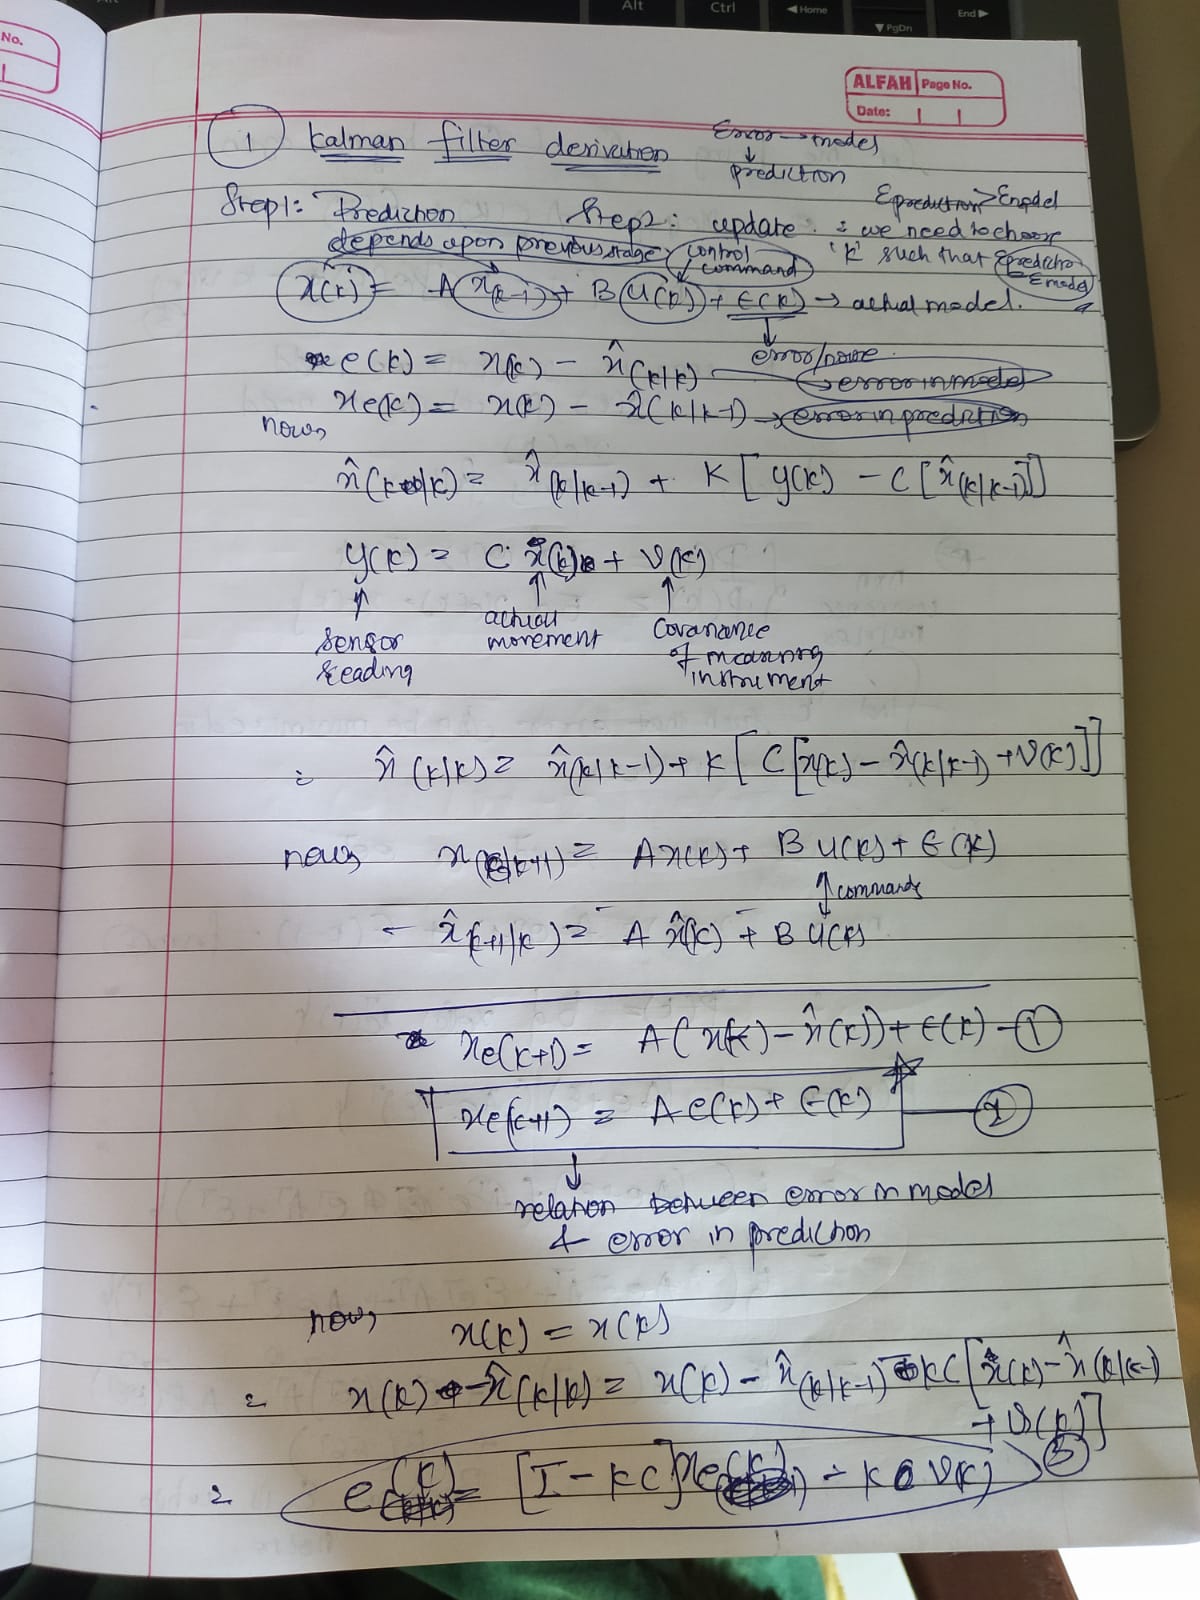 No.
Alt Ctrl ◀Home End▶
▼PgDn
ALFAH Page No.
Date:
1 Kalman filter derivation
Error → model
↓
prediction
Step1: Prediction
Step2: update
Eprediction > Emodel
∴ we need to choose
'K' such that Eprediction
= Emodel
depends upon previous stage
control
command
x(k) = A x(k-1) + B u(k) + ε(k) → actual model.
error/noise
e(k) = x(k) - x̂(k|k) → error in model
xe(k) = x(k) - x̂(k|k-1) → error in prediction
now,
x̂(k|k) = x̂(k|k-1) + K [ y(k) - C [x̂(k|k-1)]]
y(k) = C x(k) + v(k)
↑ ↑ ↑
sensor
reading
actual
movement
Covariance
of measuring
instrument
∴ x̂(k|k) = x̂(k|k-1) + K [ C [x(k) - x̂(k|k-1) + v(k)]]
now, x(k+1) = A x(k) + B u(k) + ε(k)
↑ commands
- x̂(k+1|k) = A x̂(k) + B u(k)
xe(k+1) = A(x(k) - x̂(k)) + ε(k) - 1
xe(k+1) = A e(k) + ε(k) - 2
↓
relation between error in model
& error in prediction
now, x(k) = x(k)
∴ x(k) - x̂(k|k) = x(k) - x̂(k|k-1) - KC [x(k) - x̂(k|k-1)
+ v(k)]
∴ e(k) = [I - KC] xe(k) - K v(k) 3